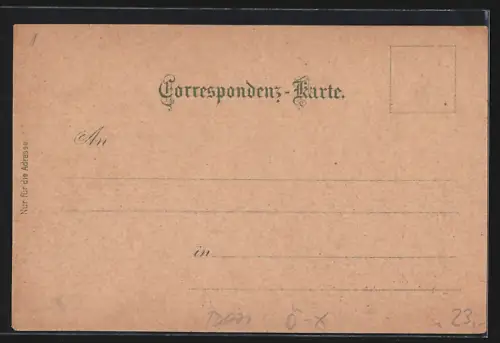 Correspondenz-Karte.
An
Nur für die Adresse
in
Ö-X
23.-